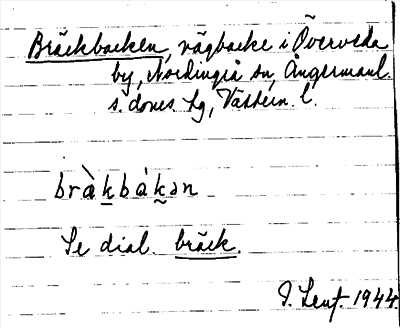 Bräckbacken, vägbacke i Överveda
by, Nordingrå sn, Ångermanl.
s. doms. lg, Västern. l.
bràkbákən
Se dial. bräck.
1944